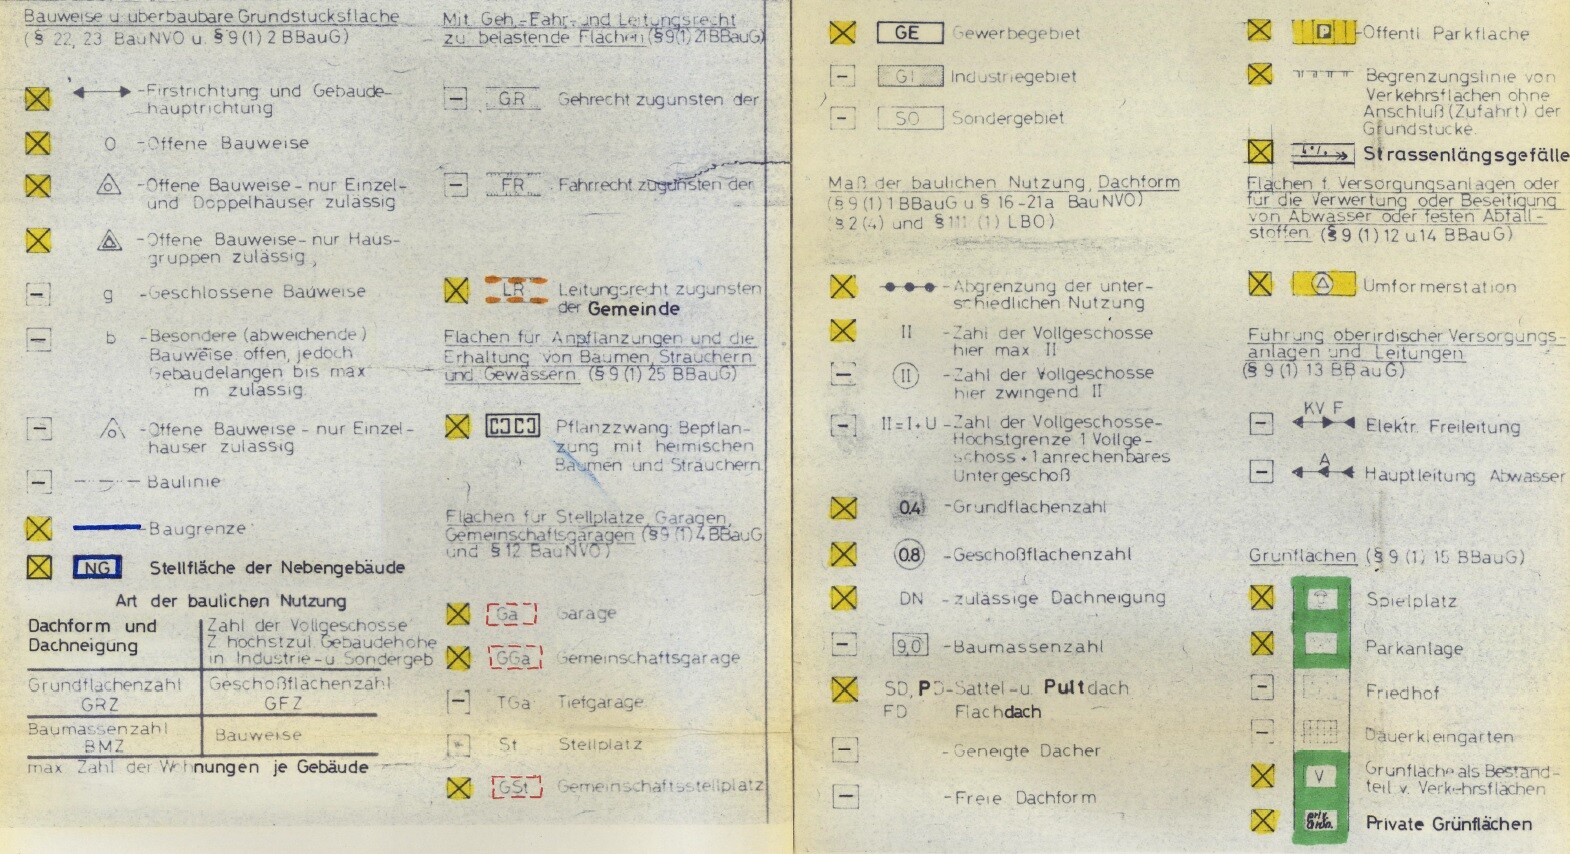 Bauweise u überbaubare Grundstücksfläche
(§ 22, 23 BauNVO u. § 9 (1) 2 BBauG)
-Firstrichtung und Gebäude-
hauptrichtung
O -Offene Bauweise
-Offene Bauweise - nur Einzel-
und Doppelhäuser zulässig
-Offene Bauweise - nur Haus-
gruppen zulässig
g -Geschlossene Bauweise
b -Besondere (abweichende)
Bauweise offen, jedoch
Gebäudelängen bis max
m zulässig
-Offene Bauweise - nur Einzel-
häuser zulässig
-Baulinie
-Baugrenze
NG Stellfläche der Nebengebäude
Art der baulichen Nutzung
Dachform und
Dachneigung
Zahl der Vollgeschosse
Z höchstzul Gebäudehöhe
in Industrie-u Sondergeb
Grundflächenzahl
GRZ
Geschoßflächenzahl
GFZ
Baumassenzahl
BMZ
Bauweise
max Zahl der Wohnungen je Gebäude
Mit Geh-, Fahr- und Leitungsrecht
zu belastende Flächen (§ 9 (1) 21 BBauG)
GR Gehrecht zugunsten der
FR Fahrrecht zugunsten der
LR Leitungsrecht zugunsten
der Gemeinde
Flächen für Anpflanzungen und die
Erhaltung von Bäumen, Sträuchern
und Gewässern (§ 9 (1) 25 BBauG)
Pflanzzwang: Bepflan-
zung mit heimischen
Bäumen und Sträuchern
Flächen für Stellplätze, Garagen,
Gemeinschaftsgaragen (§ 9 (1) 4 BBauG
und § 12 BauNVO)
Ga Garage
GGa Gemeinschaftsgarage
TGa Tiefgarage
St Stellplatz
GSt Gemeinschaftsstellplatz
GE Gewerbegebiet
GI Industriegebiet
SO Sondergebiet
Maß der baulichen Nutzung, Dachform
(§ 9 (1) 1 BBauG u § 16 - 21a BauNVO)
§ 2 (4) und § 111 (1) LBO)
-Abgrenzung der unter-
schiedlichen Nutzung
II -Zahl der Vollgeschosse
hier max II
II -Zahl der Vollgeschosse
hier zwingend II
II = I + U -Zahl der Vollgeschosse-
Höchstgrenze 1 Vollge-
schoss + 1 anrechenbares
Untergeschoß
0.4 -Grundflächenzahl
0.8 -Geschoßflächenzahl
DN -zulässige Dachneigung
9,0 -Baumassenzahl
SD, PD -Sattel-u. Pultdach
FD Flachdach
-Geneigte Dächer
-Freie Dachform
P -Öffentl Parkfläche
Begrenzungslinie von
Verkehrsflächen ohne
Anschluß (Zufahrt) der
Grundstücke.
Strassenlängsgefälle
Flächen f. Versorgungsanlagen oder
für die Verwertung oder Beseitigung
von Abwasser oder festen Abfall-
stoffen (§ 9 (1) 12 u. 14 BBauG)
Umformerstation
Führung oberirdischer Versorgungs-
anlagen und Leitungen
(§ 9 (1) 13 BBauG)
KV F
Elektr. Freileitung
A
Hauptleitung Abwasser
Grünflächen (§ 9 (1) 15 BBauG)
Spielplatz
Parkanlage
Friedhof
Dauerkleingärten
V Grünfläche als Bestand-
teil v. Verkehrsflächen
priv.
Grün. Private Grünflächen